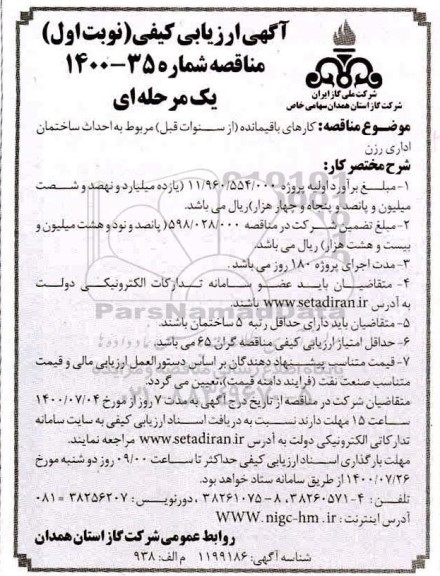 آگهی ارزیابی کیفی (نوبت اول)
مناقصه شماره ۳۵-۱۴۰۰
یک مرحله‌ای
شرکت ملی گاز ایران
شرکت گاز استان همدان سهامی خاص
موضوع مناقصه: کارهای باقیمانده (از سنوات قبل) مربوط به احداث ساختمان
اداری رزن
شرح مختصر کار:
۱- مبلغ برآورد اولیه پروژه ۱۱/۹۶۰/۵۵۴/۰۰۰ (یازده میلیارد و نهصد و شصت
میلیون و پانصد و پنجاه و چهار هزار) ریال می باشد.
۲- مبلغ تضمین شرکت در مناقصه ۵۹۸/۰۲۸/۰۰۰ ( پانصد و نود و هشت میلیون و
بیست و هشت هزار) ریال می باشد.
۳- مدت اجرای پروژه ۱۸۰ روز می باشد.
۴- متقاضیان باید عضو سامانه تدارکات الکترونیکی دولت
به آدرس www.setadiran.ir باشند.
۵- متقاضیان باید دارای حداقل رتبه ۵ ساختمان باشند.
۶- حداقل امتیاز ارزیابی کیفی مناقصه گران ۶۵ می باشد.
۷- قیمت متناسب پیشنهاد دهندگان بر اساس دستورالعمل ارزیابی مالی و قیمت
متناسب صنعت نفت (فرایند دامنه قیمت)، تعیین می گردد.
متقاضیان شرکت در مناقصه از تاریخ درج آگهی به مدت ۷ روز از مورخ ۱۴۰۰/۰۷/۰۴
ساعت ۱۵ مهلت دارند نسبت به دریافت اسناد ارزیابی کیفی به سایت سامانه
تدارکاتی الکترونیکی دولت به آدرس www.setadiran.ir مراجعه نمایند.
مهلت بارگذاری اسناد ارزیابی کیفی حداکثر تا ساعت ۰۹/۰۰ روز دو شنبه مورخ
۱۴۰۰/۰۷/۲۶ از طریق سامانه ستاد خواهد بود.
تلفن: ۴-۳۸۲۶۰۵۷۱، ۸-۳۸۲۶۱۰۷۵ ، دورنویس: ۳۸۲۵۶۲۰۷ = ۰۸۱
آدرس اینترنت: WWW. nigc-hm .ir
روابط عمومی شرکت گاز استان همدان
شناسه آگهی: ۱۱۹۹۱۸۶ م الف: ۹۳۸
ParsNamadData